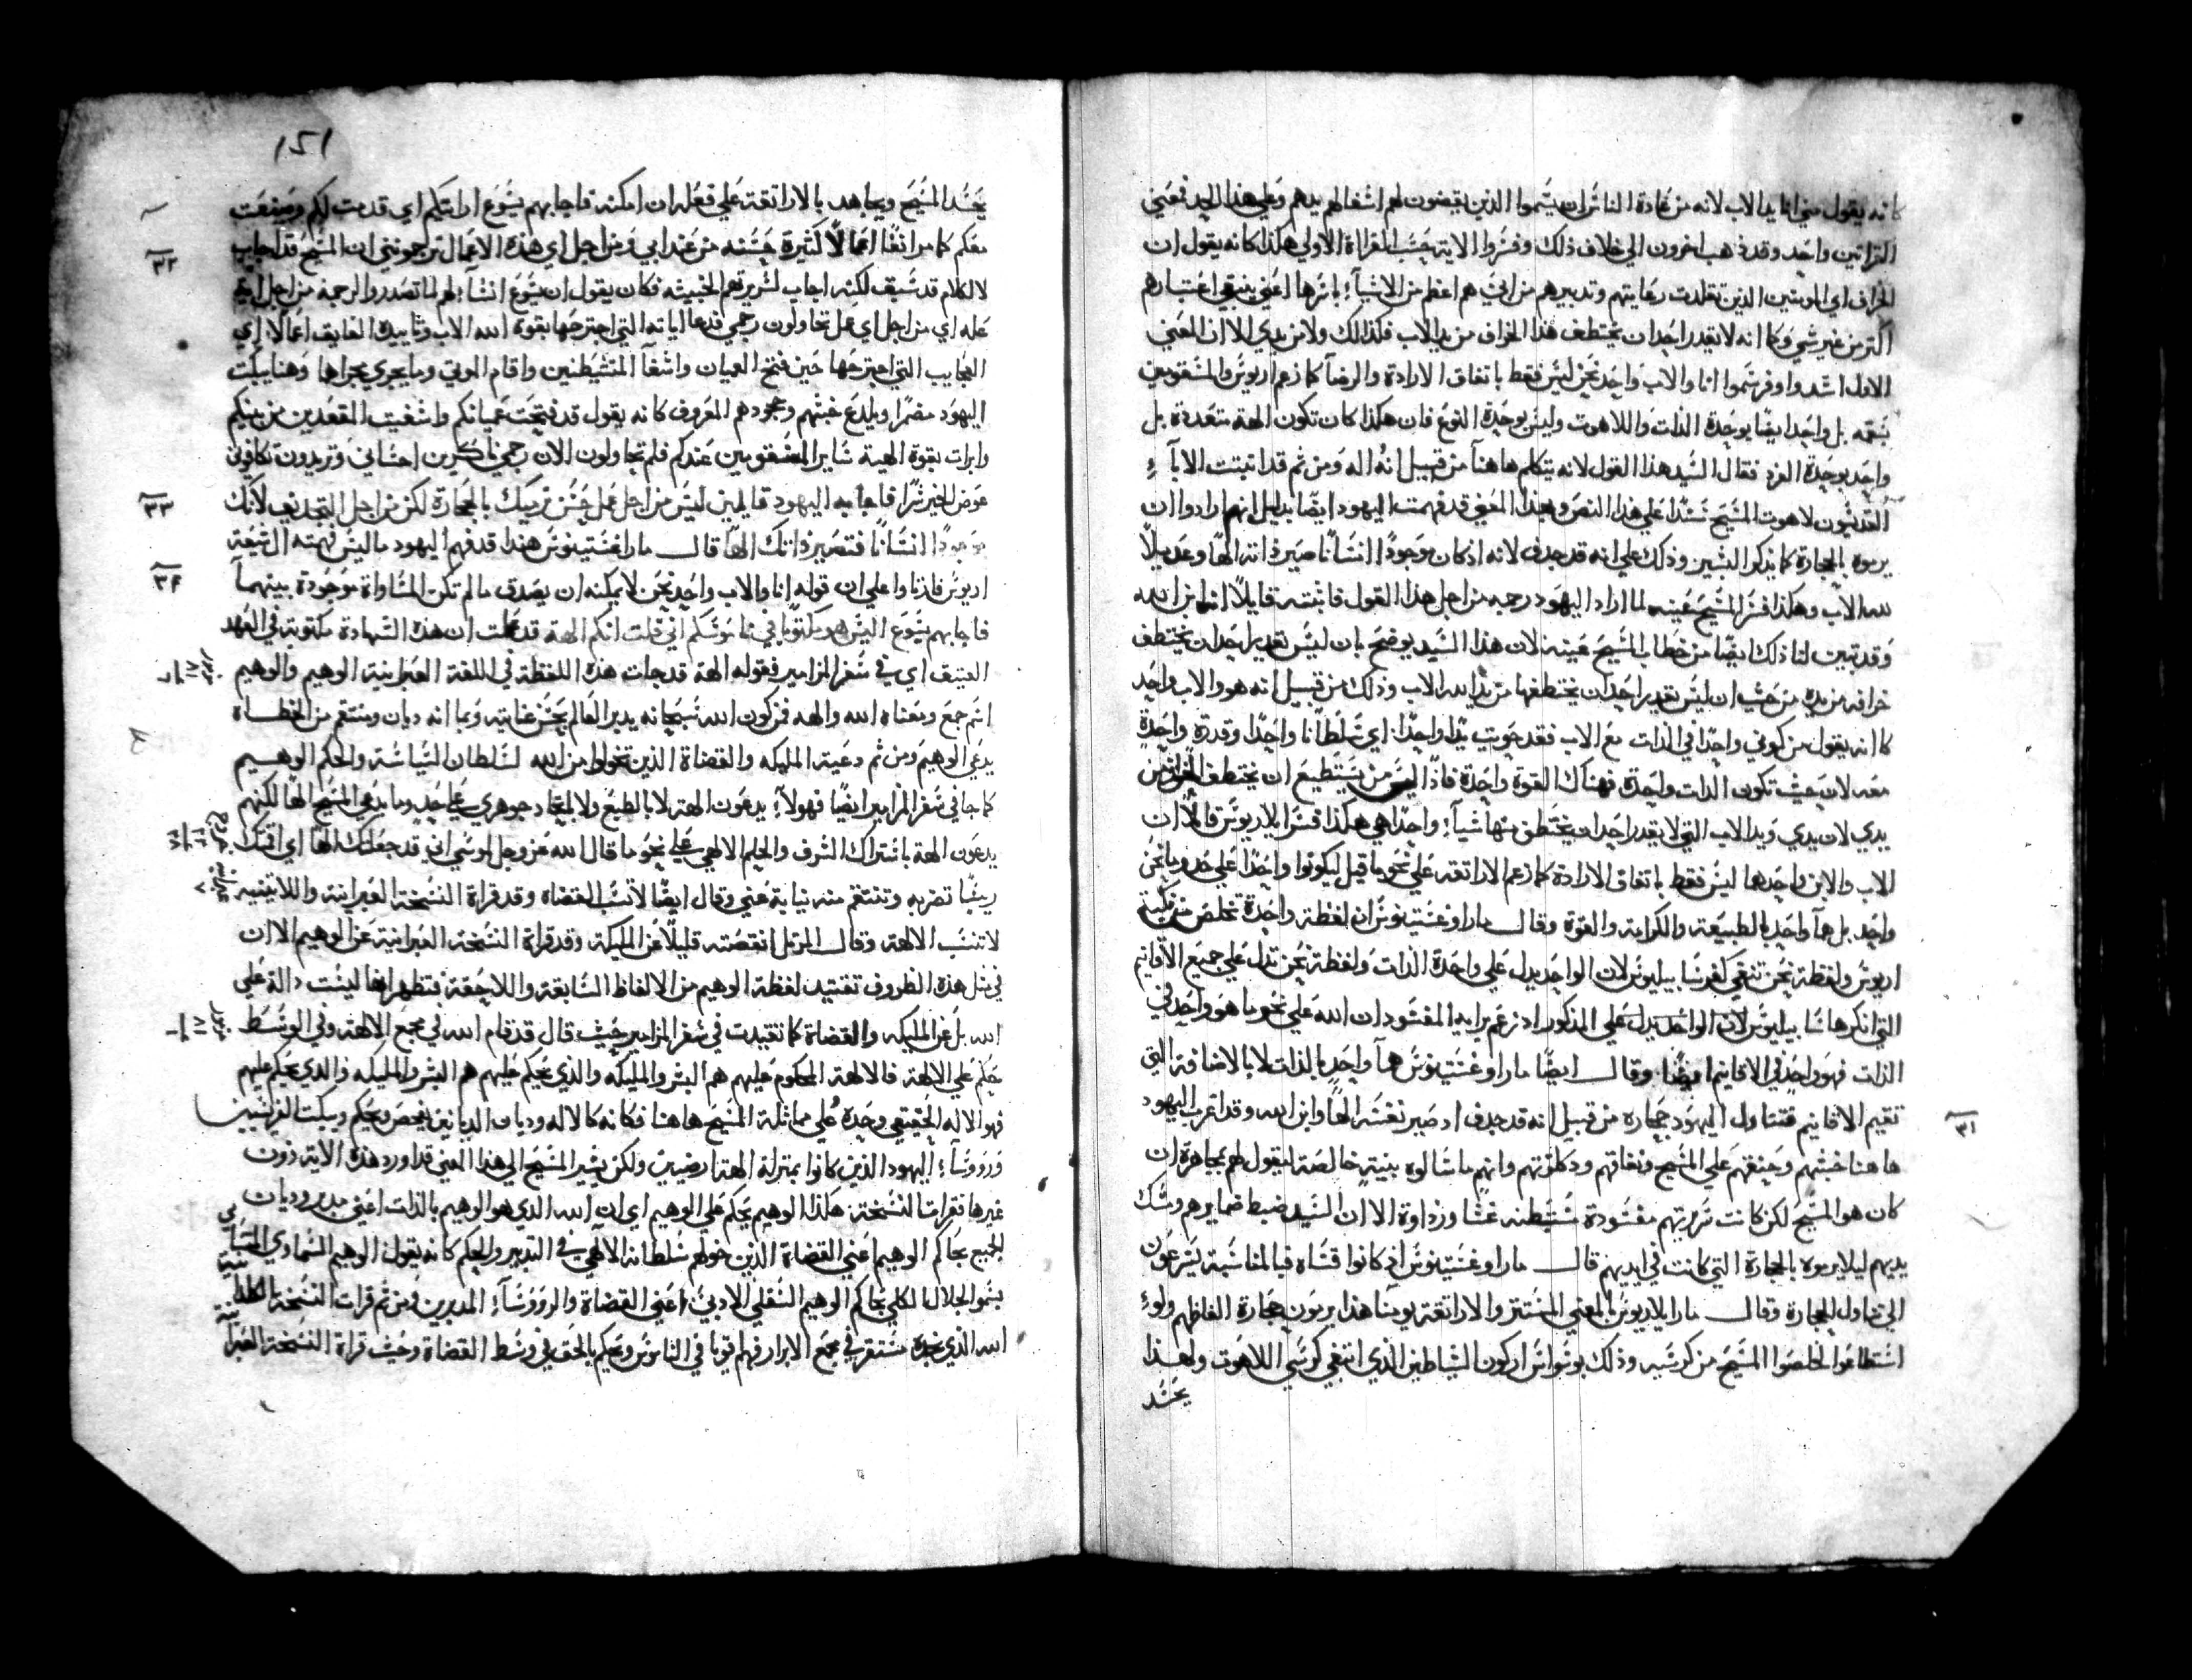 كانه يقول عني انا يد الاب لانه من عادة الناس ان يسموا الذين يقضون لهم اشغالهم يدهم وعلي هذا اليد فمعني
القراتين واحد وقد ذهب اخرون الي خلاف ذلك وفسروا الاية حسب القراة الاولي هكذا كانه يقول ان
الخراف اي المومنين الذين تقلدت رعايتهم وتدبيرهم من ابي هم اعظم من الاشيآء باسرها اعني ينبغي اعتبارهم
اكثر من غير شي وكما انه لا يقدر احد ان يختطف هذا الخراف من يد الاب فكذلك ولا من يدي الا ان المعني
الاول اسد واوفر شموا انا والاب واحد نحن ليس فقط باتفاق الارادة والرضآ كما زعم اريوس والمشقومين
بسمه بل واحد ايضا بوحدة الذات واللاهوت وليس بوحدة النوع فان هكذا كان تكون الهة متعددة بل
واحد بوحدة الفرد فقال السيد هذا القول لانه يتكلم هاهنا من قبيل انه اله ومن ثم قد اثبتت الابآء
القديسون لاهوت المسيح سندا علي هذا النص وبهذا المعني قد فهمت اليهود ايضا بدليل انهم ارادوا ان
يرموه بالحجارة كما يذكر البشير وذلك علي انه قد جدف لانه اذ كان موجودا انسانا صير ذاته الها وعديلا
لله الاب وهكذا فسر المسيح عينه لما اراد اليهود رجمه من اجل هذا القول فاثبته قايلا انا ابن الله
وقد تبين لنا ذلك ايضا من خطاب المسيح عينه لان هذا السيد يوضح بان ليس يقدر احد ان يختطف
خرافه من يده من حيث ان ليس يقدر احد ان يختطفها من يد الله الاب وذلك من قبيل انه هو والاب واحد
كما انه يقول من كوني واحدا في الذات مع الاب فقد حويت يدا واحدا اي سلطانا واحدا وقدرة واحدة
معه لان حيث تكون الذات واحدة فهناك القوة واحدة فاذا ليس من يستطيع ان يختطف الخراف من
يدي لان يدي ويد الاب التي لا يقدر احد ان يختطف منها شيآء واحدا هي هكذا فسر ايلاريوس قايلا ان
الاب والابن واحد هما ليس فقط باتفاق الارادة كما زعم الاراتقه علي نحو ما قيل ليكونوا واحدا علي حد ما نحن
واحد بل همآ واحد بالطبيعة والكرامة والقوة وقال ماراوغستينوس ان لفظة واحدة تخلص من مكيدة
اريوس ولفظة نحن تنفي كفر سابيليوس لان الواحد يدل علي واحدة الذات ولفظة نحن تدل علي جميع الاقانيم
التي انكرها سابيليوس لان الواحد يدل علي المذكور اذ زعم برايه المفسود ان الله علي نحو ما هو واحد في
الذات فهو واحد في الاقانيم ايضا وقال ايضا ماراوغستينوس همآ واحد بالذات لا بالاضافة التي
تقيم الاقانيم فتناول اليهود حجاره من قبيل انه قد جدف اذ صير نفسه الها وابن الله وقد اعرب اليهود
هاهنا خبثهم وحنقهم علي المسيح ونفاقهم ودكلوتهم وانهم ما سالوه بنية خالصة ليقول لهم بمجاهرة ان
كان هو المسيح لكن كانت سريرتهم مفسودة شيطنه غشا ورداوة الا ان السيد ضبط ضمايرهم ومسك
يديهم ليلا يرموه بالحجارة التي كانت في ايديهم قال ماراوغستينوس اذ كانوا قساه فبالمناسبة يسرعون
الي تناول الحجارة وقال مار ايلاريوس بالمعني المستتر والاراتقة يومنا هذا يرمون حجارة الفاظهم ولو
استطاعوا لخلصوا المسيح من كرسيه وذلك بوسواس اركون الشياطين الذي ابتغي كرسي اللاهوت ولهذا
يحسد
٣١
١٥١
يحسد المسيح ويجاهد بالاراتقة علي فعله ان امكنه فاجابهم يسوع ارايتكم اي قدمت لكم وصنعت
معكم كما مر انفا اعمالا كثيرة حسنه من عند ابي فمن اجل اي هذه الاعمال ترجموني ان المسيح قد اجاب
لا لكلام قد سبق لكنه اجاب لسريرتهم الخبيثه فكان يقول ان يسوع انشآء لهم لما تصدروا لرجمه من اجل اية
عمله اي من اجل اي عمل تحاولون رجمي فدعا اياته التي اجترحها بقوة الله الاب وتاييده الفايق اعمالا اي
العجايب التي اجترحها حين فتح العميان واشفآ المتشيطنين واقام الموتي وما يجري مجراها وهنا يبكت
اليهود مضمرا ويلدع خبثهم وجحودهم المعروف كانه يقول قد فتحت عميانكم واشفيت المقعدين من بينكم
وابرات بقوة الهية ساير المسقومين عندكم فلم تحاولون الان رجمي ناكرين احساني وتريدون تكافوني
عوض الخير شرا فاجابه اليهود قايلين ليس من اجل عمل حسن نرجمك بالحجارة لكن من اجل التجديف لانك
موجودا انسانا فتصير ذاتك الها قال ماراغستينوس هذا قد فهم اليهود ما ليس فهمته الشيعة
اريوس فادناوا علي ان قوله انا والاب واحد نحن لا يمكنه ان يصدق ما لم تكن المساواة موجودة بينهمآ
فاجابهم يسوع اليس هو مكتوبا في ناموسكم اني قلت انكم الهة قد قلت ان هذه الشهادة مكتوبة في العهد
العتيق اي في سفر المزامير فقوله الهة قد جات هذه اللفظة في اللغة العبرانية الوهيم والوهيم
اسم جمع ومعناه الله والهه فمن كون الله سبحانه يدبر العالم بحسن عنايته وبما انه ديان ومنتقم من الخطاة
يدعي الوهيم ومن ثم دعية المليكه والقضاة الذين تخولوا من الله لسلطان السياسة والحكم الوهيم
كما جا في سفر المزامير ايضا فهولآء يدعون الهة لا بالطبع ولا باتحاد جوهري علي حد ما يدعي المسيح الها لكنهم
يدعون الهة باشتراك الشرف والحلم الالهي علي نحو ما قال الله عز وجل لموسي اني قد جعلتك الها اي اقمتك
ربيبا تضربه وتنتقم منه نيابة عني وقال ايضا لا تسب القضاه وقد قراة النسخة العبرانية واللاتينيه
لا تسب الالهة وقال المرتل انقصته قليلا عن المليكة وقد قراة النسخة العبرانية عن الوهيم الا ان
في مثل هذه الظروف تقتيد لفظة الوهيم من الالفاظ السابقة واللاحقة فتظهر انها ليست دالة علي
الله بل عن المليكه والقضاة كما تقيدت في سفر المزامير حيث قال قد قام الله في مجمع الالهة وفي الوسط
حكم علي الالهة فالالهة المحكوم عليهم هم البشر والمليكه والذي يحكم عليهم هم البشر والمليكه والذي يحكم عليهم
فهو الاله الحقيقي وحده علي مماثلة المسيح هاهنا فكانه كالاله وديان الديانين يفحص ويحكم ويبكت الفريسيين
وروسآء اليهود الذين كانوا بمنزلة الهة ارضيين ولكن يشير المسيح الي هذا المعني قد اورد هذه الاية دون
غيرها فقرات النسخة هكذا الوهيم يحكم علي الوهيم اي ان الله الذي هو الوهيم بالذات اعني مدبر وديان
الجميع يحاكم الوهيم اعني القضاة الذين خولهم سلطانه الالهي في التدبير والحكم كانه يقول الوهيم السمادي المتسامي
بسمو الجلال الكلي يحاكم الوهيم السفلي الادني اعني القضاة والروسآء المدبرين ومن ثم قرات النسخة الكلدانية
الله الذي مجده مستقر في مجمع الابرار فهم قويا في الناموس ويحكم بالحق في وسط القضاة وحيث قراة النسخة العبرا
٣٢
٣٣
٣٤